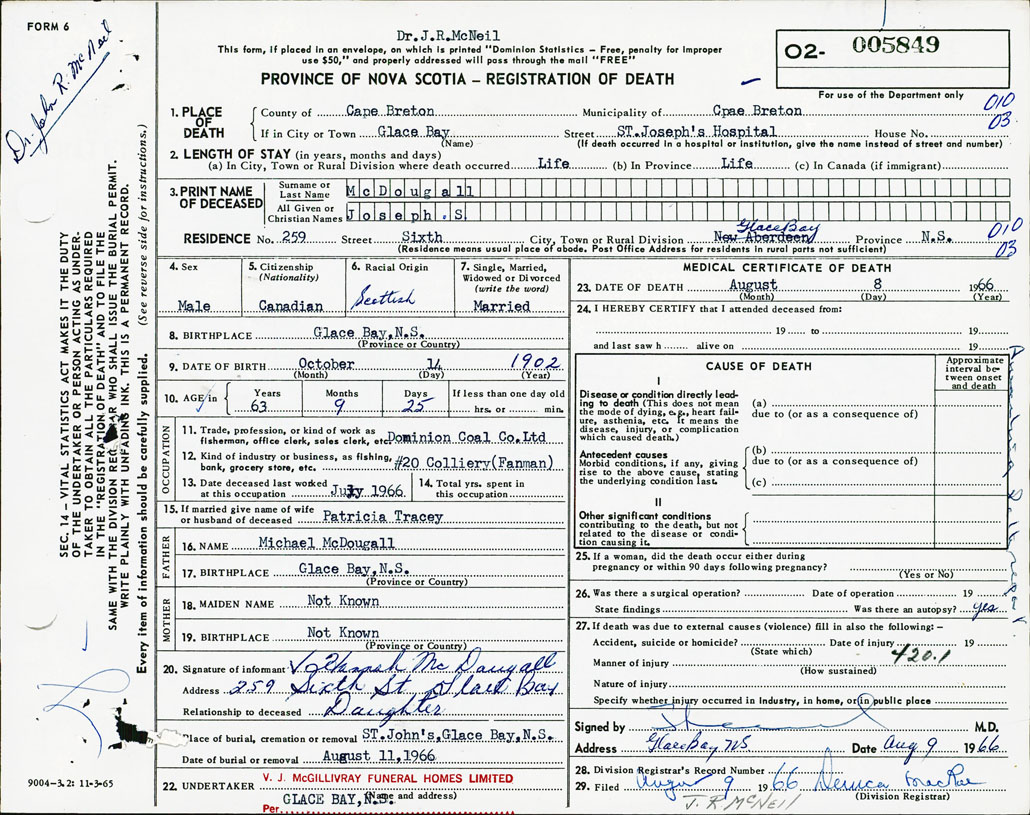 FORM 6
Dr. John R. McNeil
Dr.J.R.McNeil
This form, if placed in an envelope, on which is printed "Dominion Statistics – Free, penalty for improper
use $50," and properly addressed will pass through the mail "FREE"
PROVINCE OF NOVA SCOTIA – REGISTRATION OF DEATH
O2- 005849
For use of the Department only
1. PLACE OF DEATH
County of Cape Breton Municipality of Cpae Breton 010
If in City or Town Glace Bay Street ST.Joseph's Hospital House No. 03
(Name) (If death occurred in a hospital or institution, give the name instead of street and number)
2. LENGTH OF STAY (in years, months and days)
(a) In City, Town or Rural Division where death occurred Life (b) In Province Life (c) In Canada (if immigrant)
3. PRINT NAME OF DECEASED
Surname or Last Name McDougall
All Given or Christian Names Joseph.S
Glace Bay
RESIDENCE No. 259 Street Sixth City, Town or Rural Division New Aberdeen Province N.S. 010
(Residence means usual place of abode. Post Office Address for residents in rural parts not sufficient) 03
4. Sex
Male
5. Citizenship
(Nationality)
Canadian
6. Racial Origin
Scottish
7. Single, Married,
Widowed or Divorced
(write the word)
Married
8. BIRTHPLACE Glace Bay,N.S.
(Province or Country)
9. DATE OF BIRTH October 14 1902
(Month) (Day) (Year)
10. AGE in Years Months Days If less than one day old
63 9 25 hrs. or min.
OCCUPATION
11. Trade, profession, or kind of work as
fisherman, office clerk, sales clerk, etc. Dominion Coal Co.Ltd
12. Kind of industry or business, as fishing,
bank, grocery store, etc. #20 Colliery(Fanman)
13. Date deceased last worked
at this occupation July 1966
14. Total yrs. spent in
this occupation
15. If married give name of wife
or husband of deceased Patricia Tracey
FATHER
16. NAME Michael McDougall
17. BIRTHPLACE Glace Bay,N.S.
(Province or Country)
MOTHER
18. MAIDEN NAME Not Known
19. BIRTHPLACE Not Known
(Province or Country)
20. Signature of informant McDougall
Address 259 Sixth St Glace Bay
Relationship to deceased Daughter
Place of burial, cremation or removal ST.John's,Glace Bay,N.S.
Date of burial or removal August 11,1966
22. UNDERTAKER V. J. McGILLIVRAY FUNERAL HOMES LIMITED
(Name and address)
GLACE BAY, N.S.
Per
MEDICAL CERTIFICATE OF DEATH
23. DATE OF DEATH August 8 1966
(Month) (Day) (Year)
24. I HEREBY CERTIFY that I attended deceased from:
19 to 19
and last saw h alive on 19
CAUSE OF DEATH
Approximate
interval be-
tween onset
and death
I
Disease or condition directly lead-
ing to death (This does not mean
the mode of dying, e.g., heart fail-
ure, asthenia, etc. It means the
disease, injury, or complication
which caused death.)
(a)
due to (or as a consequence of)
Antecedent causes
Morbid conditions, if any, giving
rise to the above cause, stating
the underlying condition last.
(b)
due to (or as a consequence of)
(c)
II
Other significant conditions
contributing to the death, but not
related to the disease or condi-
tion causing it.
25. If a woman, did the death occur either during
pregnancy or within 90 days following pregnancy?
(Yes or No)
26. Was there a surgical operation? Date of operation 19
State findings Was there an autopsy? yes
27. If death was due to external causes (violence) fill in also the following:–
Accident, suicide or homicide? Date of injury 19
(State which) 420.1
Manner of injury
(How sustained)
Nature of injury
Specify whether injury occurred in industry, in home, or in public place
Signed by M.D.
Address Glace Bay NS Date Aug 9 1966
28. Division Registrar's Record Number
29. Filed August 9 1966
(Division Registrar)
J. R MCNEIL
SEC. 14 – VITAL STATISTICS ACT MAKES IT THE DUTY
OF THE UNDERTAKER OR PERSON ACTING AS UNDER-
TAKER TO OBTAIN ALL THE PARTICULARS REQUIRED
IN THE "REGISTRATION OF DEATH" AND TO FILE THE
SAME WITH THE DIVISION WHO SHALL ISSUE THE BURIAL PERMIT.
WRITE PLAINLY WITH UNFADING INK. THIS IS A PERMANENT RECORD.
Every item of information should be carefully supplied. (See reverse side for instructions.)
9004-3.2: 11-3-65